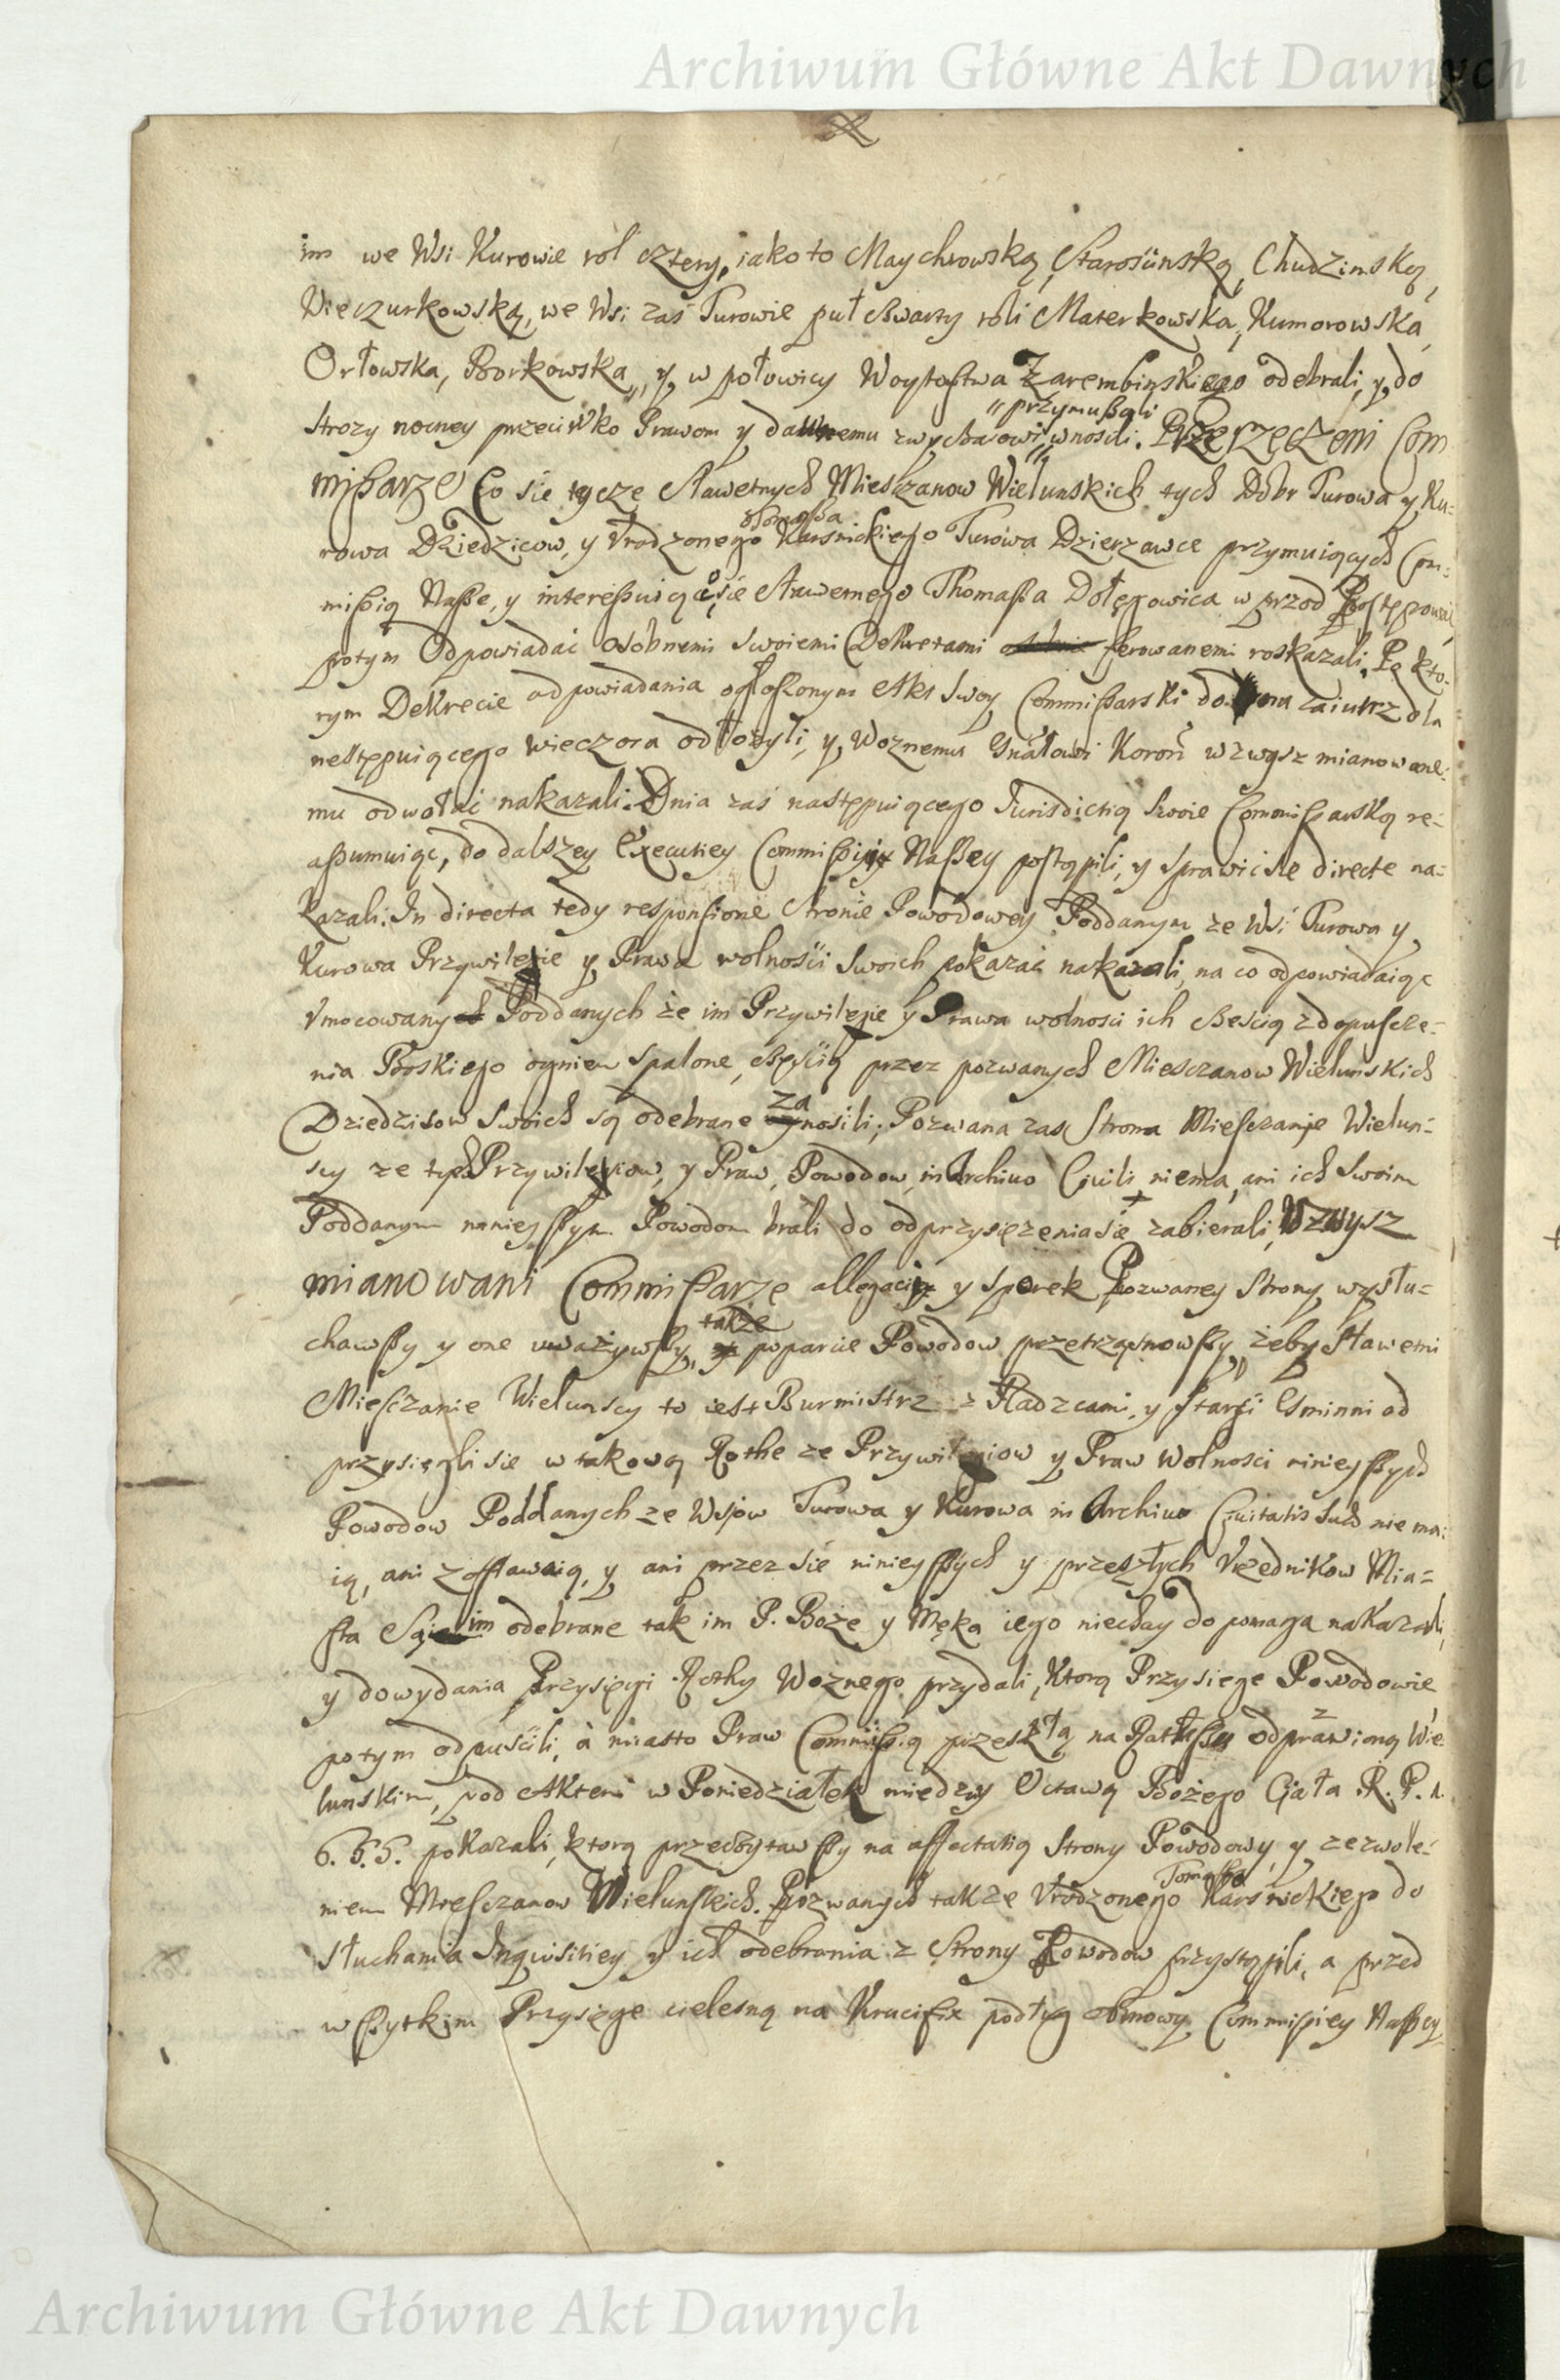 Archiwum Główne Akt Dawnych
im we Wsi Kurowie rol cztery, iako to Maychrowską, Starosińską, Chudzinską,
Wieczurkowską, we Wsi zaś Turowie puł czwarty roli Materkowska, Kumorowska,
Orłowska, Borkowska, y w połowicy Woytostwa Zarembinskiego odebrali, y do
" przymußali
strozy nocney przeciwko Prawom y dawnemu zwyczaiowi wnosili. Przerzeczeni Com
mißarze Co sie tycze Sławetnych Mieszczanow Wielunskich tych Dobr Turowa y Ku-
Thomaßa
rowa Dziedzicow, y Vrodzonego Karsnickiego Turowa Dzierzawce przymuiących Com-
mißią Naßę, y intereßuiące sie Sławetnego Thomaßa Dołęgowica w przod Postępować
potym Odpowiadać osobnemi swoiemi Dekretami ferowanemi roskazali. Po kto-
rym Dekrecie odpowiadania ogłoszonym Akt swoy Commißarski do dnia zaiutrz dla
nestępuiącego wieczora odłożyli, y Woznemu Gnałowi Koron wzwysz mianowane-
mu odwołać nakazali. Dnia zaś następuiącego Jurisdictią Swoie Commißarską re-
aßumuiąc, do dalszey Executiey Commißiy Naßey postąpili, y sprawić sie directe na-
kazali. In directa tedy responsione Stronie Powodowey Poddanym ze Wsi Turowa y
Kurowa Przywileie y Prawa wolnośći Swoich pokazać nakazali, na co odpowiadaiąc
Vmocowany Poddanych że im Przywileie y Prawa wolnosci ich cześcią z dopuscze-
nia Boskiego ogniem spalone, częścią przez pozwanych Miesczanow Wielunskich
Dziedzicow Swoich są odebrane zanosili; Pozwana zas Strona Miesczanie Wielun-
scy ze tych Przywileiow, y Praw, Powodow, in Archiuo Ciuili niema, ani ich Swoim
Poddanym ninieyßym Powodom brali do odprzysiężenia sie zabierali, Wzwysz
mianowani Commißarze allegacią y sporek Pozwaney Strony wysłu-
także
chawßy y one uważywßy, poparcie Powodow przetrząsnowßy, żeby Sławetni
Miesczanie Wielunscy to iest Burmistrz z Radzcami, y starśi Gminni od
przysięgli sie w takową Rothe ze Przywileiow y Praw Wolnosci ninieyßych
Powodow Poddanych ze Wsiow Turowa y Kurowa in Archiuo Ciuitatis Suo nie ma-
ią, ani zostawaią, y ani przez sie ninieyßych y przeszłych Vrzednikow Mia-
sta Są im odebrane tak im P. Boże y Męka iego niechay do pomaga nakazali,
y dowydania Przysięgi Rothy Woznego przydali, Ktorą Przysiege Powodowie
potym odpuśćili, à miasto Praw Commißią przeszłą na Ratußu odprawioną Wie-
lunskim, pod Aktem w Poniedziałek miedzy Octawą Bożego Ciała R. P. 1.
6. 5. 5. pokazali, ktorą przeczytawßy na affectatią Strony Powodowy, y zezwole-
Tomaßa
niem Miesczanow Wielunskich Pozwanych także Vrodzonego Karsnickiego do
słuchania Inquisitiey y ich odebrania z Strony Powodow przystąpili, a przed
wßytkim Przysięge cielesną na Krucifix podług obmowy Commißiey Naßey
Archiwum Główne Akt Dawnych